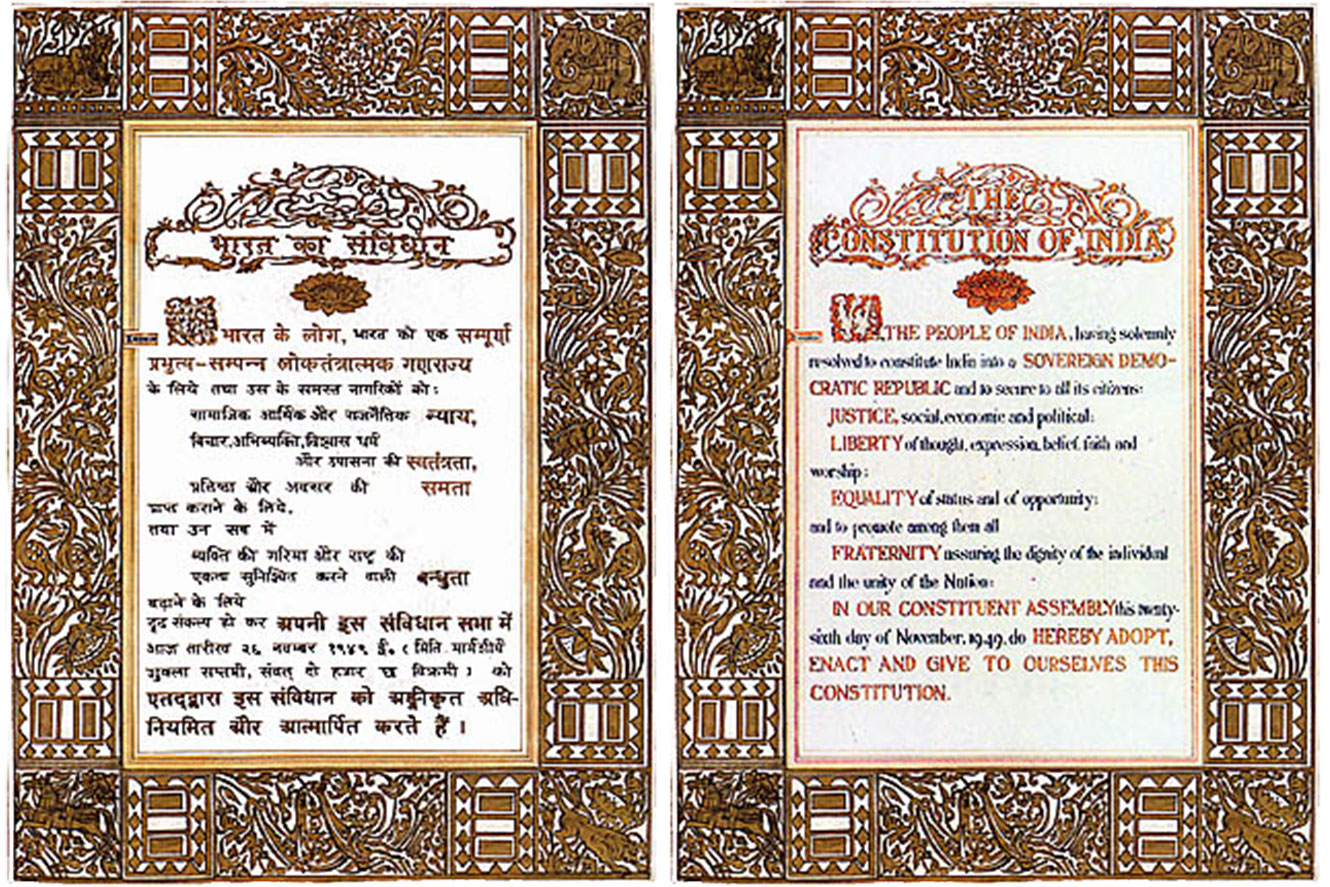 भारत का संविधान
हम भारत के लोग, भारत को एक सम्पूर्ण
प्रभुत्व-सम्पन्न लोकतंत्रात्मक गणराज्य
के लिये तथा उस के समस्त नागरिकों को:
सामाजिक आर्थिक और राजनैतिक न्याय,
विचार,अभिव्यक्ति,विश्वास धर्म
और उपासना की स्वतंत्रता,
प्रतिष्ठा और अवसर की समता
प्राप्त कराने के लिये,
तथा उन सब में
व्यक्ति की गरिमा और राष्ट्र की
एकता सुनिश्चित करने वाली बन्धुता
बढ़ाने के लिये
दृढ संकल्प हो कर अपनी इस संविधान सभा में
आज तारीख २६ नवम्बर १९४९ ई. ( मिति मार्गशीर्ष
शुक्ला सप्तमी, संवत् दो हजार छ विक्रमी ) को
एतद्द्वारा इस संविधान को अङ्गीकृत अधि-
नियमित और आत्मार्पित करते हैं ।
THE
CONSTITUTION OF INDIA
WE, THE PEOPLE OF INDIA, having solemnly
resolved to constitute India into a SOVEREIGN DEMO-
CRATIC REPUBLIC and to secure to all its citizens:
JUSTICE, social, economic and political;
LIBERTY of thought, expression, belief, faith and
worship;
EQUALITY of status and of opportunity;
and to promote among them all
FRATERNITY assuring the dignity of the individual
and the unity of the Nation;
IN OUR CONSTITUENT ASSEMBLY this twenty-
sixth day of November, 1949, do HEREBY ADOPT,
ENACT AND GIVE TO OURSELVES THIS
CONSTITUTION.